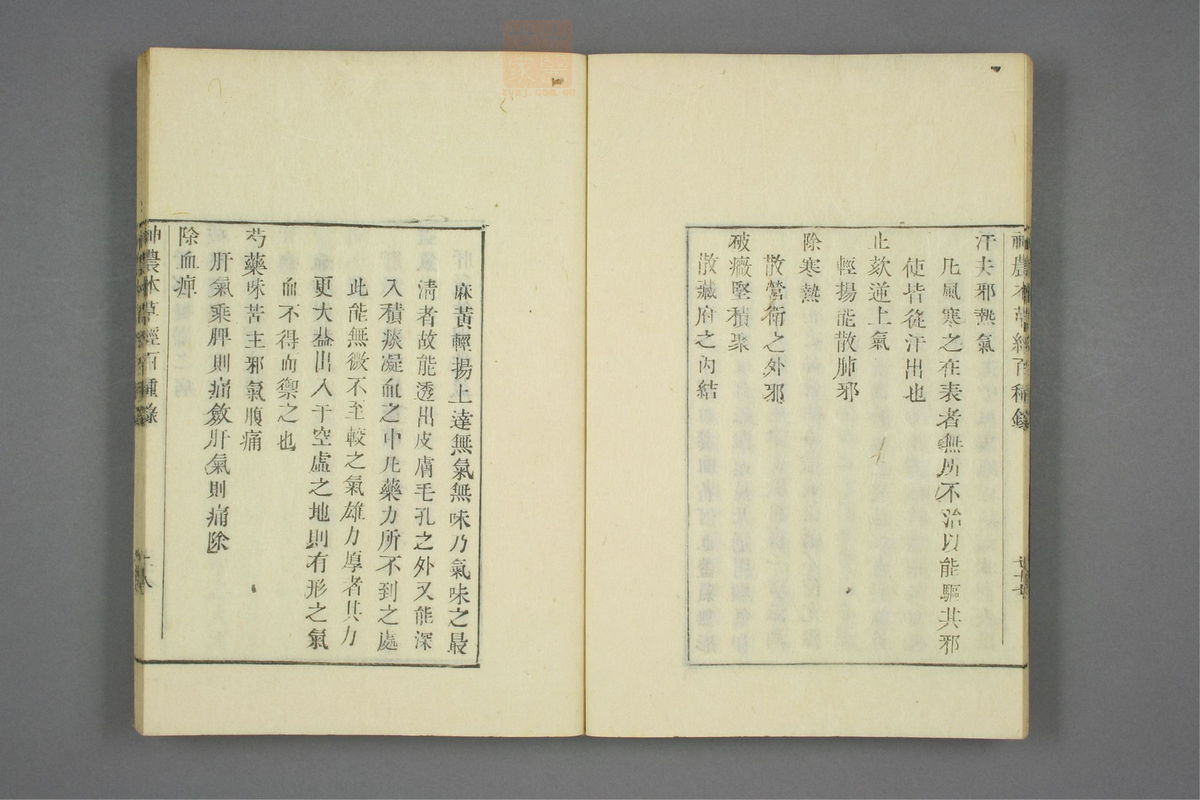 神農本草經百種錄
汗去邪熱氣
凡風寒之在表者無所不治以能驅其邪
使皆從汗出也
止欬逆上氣
輕揚能散肺邪
除寒熱
散營衛之外邪
破癥堅積聚
散藏府之內結
麻黃輕揚上達無氣無味乃氣味之最
清者故能透出皮膚毛孔之外又能深
入積痰凝血之中凡藥力所不到之處
此能無微不至較之氣雄力厚者其力
更大蓋出入于空虛之地則有形之氣
血不得而禦之也
芍藥味苦主邪氣腹痛
肝氣乘脾則痛斂肝氣則痛除
除血痹
神農本草經百種錄